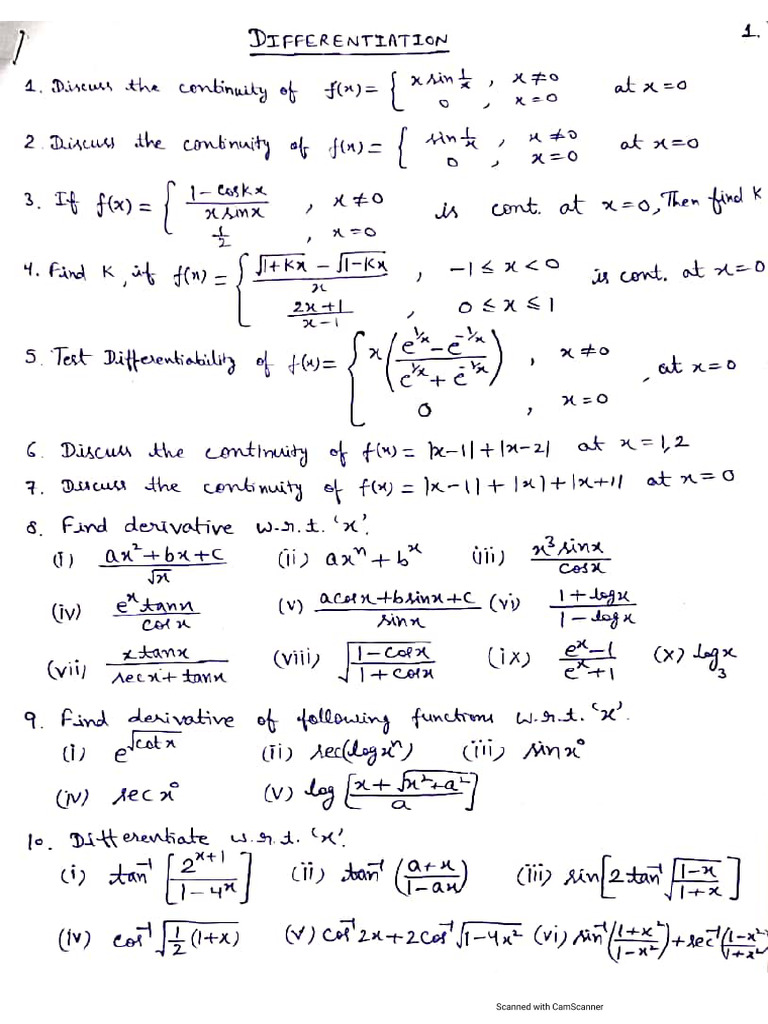 DIFFERENTIATION
1.
1. Discuss the continuity of f(x) = { x sin 1/x , x ≠ 0
0 , x = 0 at x = 0
2. Discuss the continuity of f(x) = { sin 1/x , x ≠ 0
0 , x = 0 at x = 0
3. If f(x) = { (1 - cos kx)/(x sin x) , x ≠ 0
1/2 , x = 0 is cont. at x = 0, Then find K
4. Find K, if f(x) = { (√(1+Kx) - √(1-Kx))/x , -1 ≤ x < 0
(2x+1)/(x-1) , 0 ≤ x ≤ 1 is cont. at x = 0
5. Test Differentiability of f(x) = { x((e^(1/x) - e^(-1/x))/(e^(1/x) + e^(-1/x))) , x ≠ 0
0 , x = 0 , at x = 0
6. Discuss the continuity of f(x) = |x-1| + |x-2| at x = 1, 2
7. Discuss the continuity of f(x) = |x-1| + |x| + |x+1| at x = 0
8. Find derivative w.r.t. 'x'.
(i) (ax²+bx+c)/√x (ii) axⁿ + bˣ (iii) (x³ sinx)/cosx
(iv) (eˣ tanx)/cosx (v) (a cosx + b sinx + c)/sinx (vi) (1 + logx)/(1 - logx)
(vii) (x tanx)/(secx + tanx) (viii) √((1-cosx)/(1+cosx)) (ix) (eˣ-1)/(eˣ+1) (x) log₃x
9. Find derivative of following functions w.r.t. 'x'.
(i) e^√(cot x) (ii) sec(logxⁿ) (iii) sin x°
(iv) sec x° (v) log[(x + √(x²+a²))/a]
10. Differentiate w.r.t. 'x'.
(i) tan⁻¹[2^(x+1)/(1-4ˣ)] (ii) tan⁻¹((a+x)/(1-ax)) (iii) sin[2tan⁻¹√((1-x)/(1+x))]
(iv) cos⁻¹√(1/2(1+x)) (v) cos⁻¹2x + 2cos⁻¹√(1-4x²) (vi) sin⁻¹((1+x²)/(1-x²)) + sec⁻¹((1-x²)/(1+x²)
Scanned with CamScanner